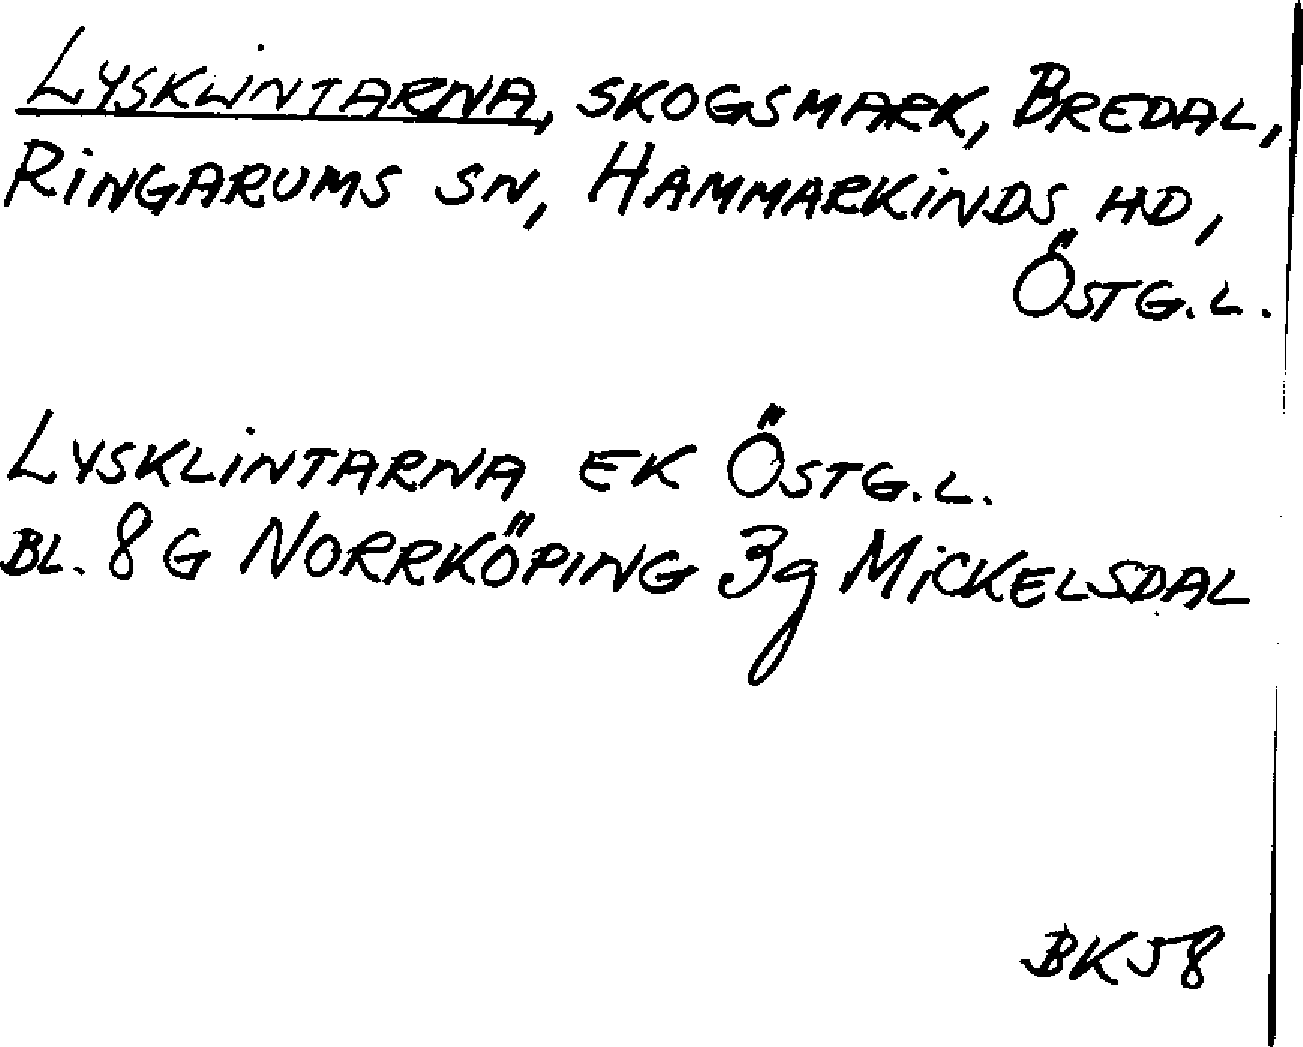 LYSKLINTARNA, SKOGSMARK, BREDAL,
RINGARUMS SN, HAMMARKINDS HD,
ÖSTG.L.
LYSKLINTARNA EK ÖSTG.L.
BL. 8G NORRKÖPING 3g MICKELSDAL
BK58